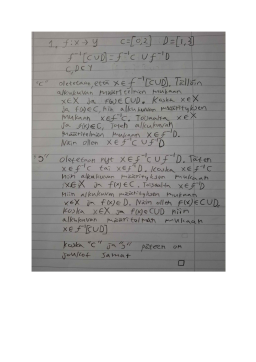 1. f: X → Y    C = [0,2]    D = [1,3]
f⁻¹[C∪D] = f⁻¹C ∪ f⁻¹D
C, D ⊆ Y
"⊂" Oletetaan, että x ∈ f⁻¹[C∪D]. Tällöin
alkukuvan määritelmän mukaan
x∈X ja f(x)∈C∪D. Koska x∈X
ja f(x)∈C, niin alkukuvan määritelmän
mukaan x∈f⁻¹C. Toisaalta x∈X
ja f(x)∈D, joten alkukuvan
määritelmän mukaan x∈f⁻¹D.
Näin ollen x∈f⁻¹C ∪ f⁻¹D
"⊃" Oletetaan nyt x∈f⁻¹C ∪ f⁻¹D. Täten
x∈f⁻¹C tai x∈f⁻¹D. Koska x∈f⁻¹C
niin alkukuvan määritelmän mukaan
x∈X ja f(x)∈C. Toisaalta x∈f⁻¹D
niin alkukuvan määritelmän mukaan
x∈X ja f(x)∈D. Näin ollen f(x)∈C∪D.
Koska x∈X ja f(x)∈C∪D niin
alkukuvan määritelmän mukaan
x∈f⁻¹[C∪D]
Koska "⊂" ja "⊃" on
joukot samat